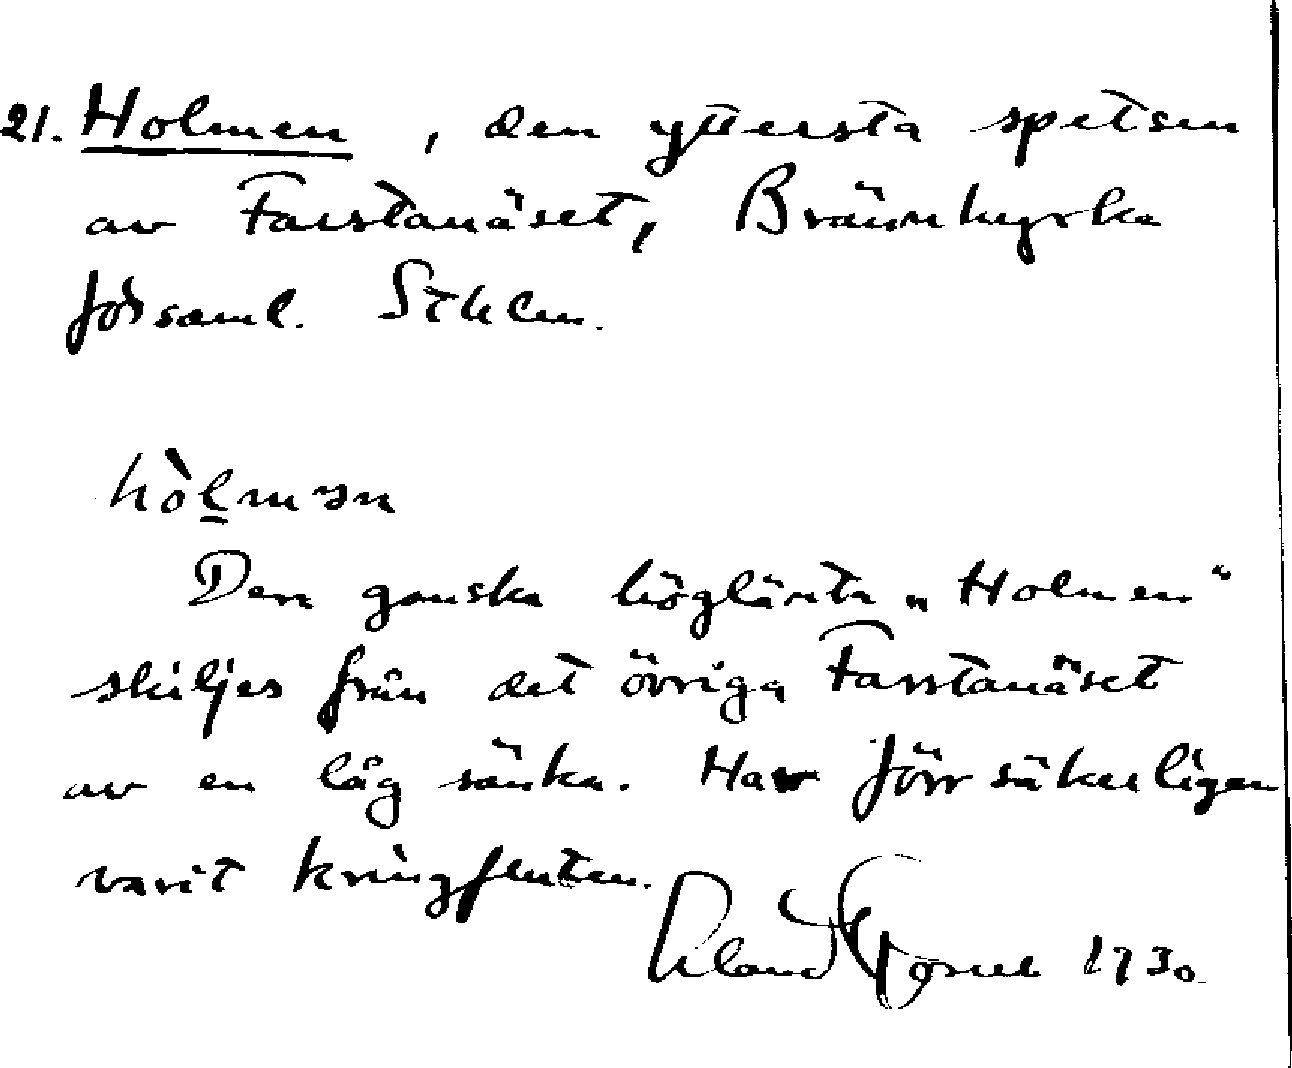 21. Holmen, den yttersta spetsen
av Farstanäset, Brännkyrka
förs​aml. Sthlm.
hòlmən
Den ganska höglänta „Holmen“
skiljes från det övriga Farstanäset
av en låg sänka. Har förr säkerligen
varit kringfluten.
1930